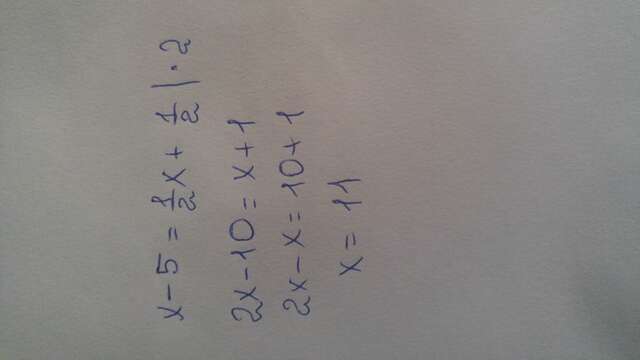 x - 5 = 1/2 x + 1/2 | · 2
2x - 10 = x + 1
2x - x = 10 + 1
x = 11